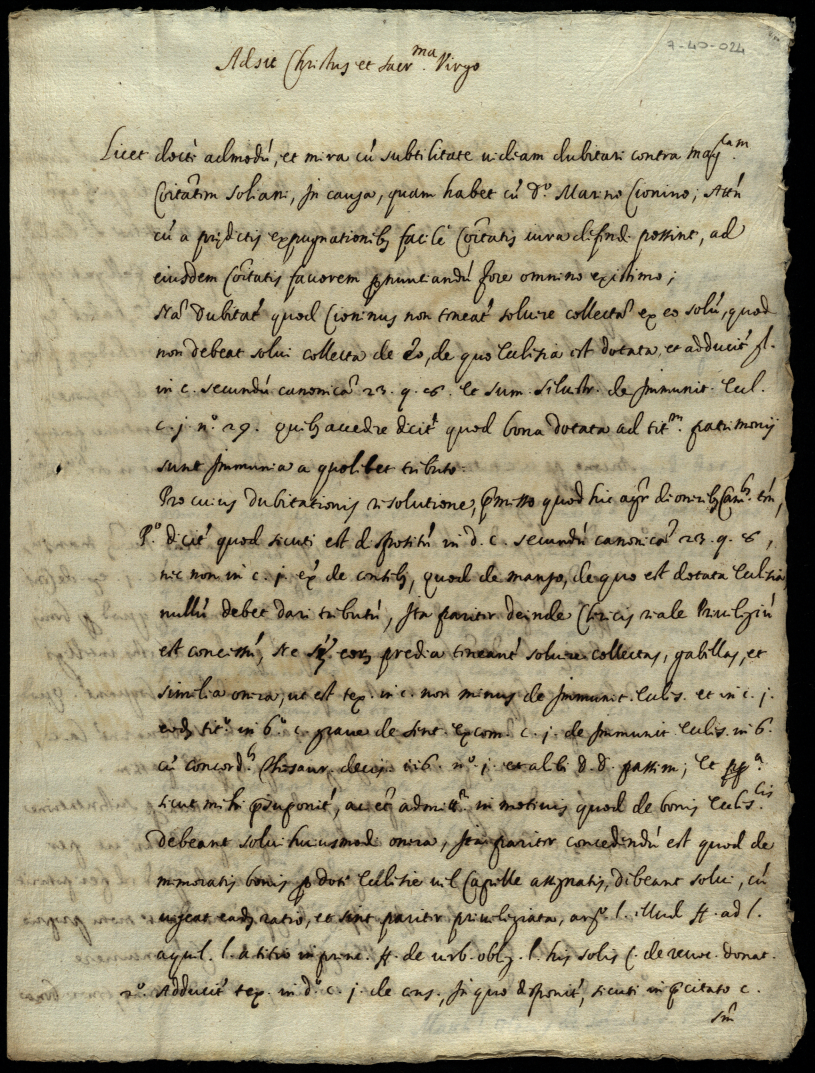 7-40-024
Adsit Christus et sacr.ma Virgo
Licet docti admodū, et mira cū subtilitate videam dubitari contra
Coitatem Soliani, In causa, quam habet cū D.o Marino Cionino; Attn
cū a prędictis expugnationib; facilè Coitatis iura difendi possint, ad
eiusdem Coitatis favorem pnuntiandū fore omnino existimo;
Na Dubitat quod Cioninus non teneat soluere collecta ex eo solū, quod
non debeat solui collecta de eo, de quo Eclisia est dotata, et adducit
in c. secundū canonica 23. q. 8. et sum. Siluestr. de Immunit. Ecl.
c. j. n.o 29. quib; accedre dicit quod bona dotata ad tit.m patrimonij
sunt Immunia a quolibet tributo.
Pro cuius dubitationis risolutione, pmitto quod hic
P.o dicit quod sicuti est dispositū in d. c. secundū canonica 23. q. 8,
nec non in c. j. ex de, quod de manso, de quo est dotata Eclisia
nullū debet dari tributū, Ita pariter deinde Clericis tale Priuilegiū
est concessū, Ne predia teneant soluere collectas, gabellas, et
similia onera, ut est tex. in c. non minus de Immunit. Eclis. et in c. j.
eod; tit.o in 6.o c. graue de sent. excom. c. j. de Immunit Eclis. in 6.
cū concord. Thesaur. decis. n.o j. et alibi d. d. passim; Et
sicut mihi psuponit, ac et admitt.r in motiuis quod de bonis Eclis.cis
debeant solui huiusmodi onera, Ita pariter concedendū est quod de
memoratis bonis p doti Eclisie uel Capelle assignatis, debeant solui, cū
uigeat eadē ratio, et sint pariter priuilegiata, arg.o l. illud ff. ad l.
aquil. l. a titio in princ. ff. de uerb. oblig. l. his solis C. de reuoc. donat.
2.o Adducit tex. in d.o c. j. de cens., In quo disponit, sicuti in pcitato c.